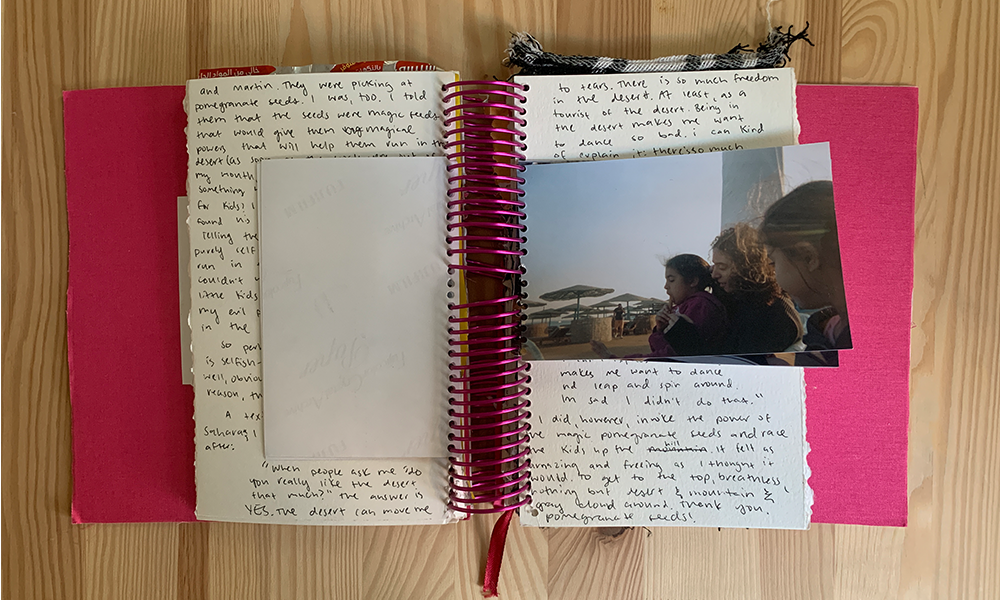 خالي من المواد الحا
and martin. They were picking at
pomegranate seeds. I was, too. I told
them that the seeds were magic seeds
that would give them magical
powers that will help them run in the
desert (as
my mouth
something
for kids? I
found his
Telling the
purely self
run in
couldn't
little kids
my evil
in the
So per
is selfish-
well, obvio
reason, th
A tex
Sahara,
after:
"When people ask me "do
you really like the desert
that much?" the answer is
YES. The desert can move me
to tears. There is so much freedom
in the desert. At least, as a
tourist of the desert. Being in
the desert makes me want
to dance so bad. i can kind
of explain it. there's so much
makes me want to dance
nd leap and spin around.
Im sad I didn't do that."
I did, however, invoke the power of
he magic pomegranate seeds and race
he kids up the hill mountain. It felt as
amazing and freeing as I thought it
would. to get to the top, breathless
nothing but desert & mountain &
gray cloud around. Thank you,
pomegranate seeds!